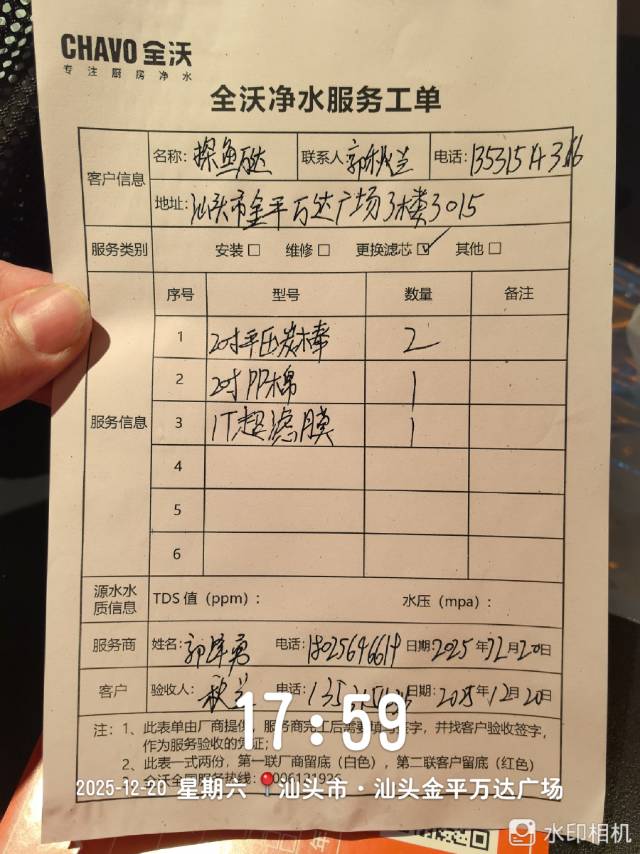 CHAVO 全沃
专注厨房净水
全沃净水服务工单
客户信息
名称: 探鱼万达 联系人 郭秋兰 电话:
地址: 汕头市金平万达广场3楼3015
服务类别 安装□ 维修□ 更换滤芯☑ 其他□
服务信息
序号 型号 数量 备注
1 20寸平压炭棒 2
2 20寸PP棉 1
3 1T超滤膜 1
4
5
6
源水水质信息 TDS 值（ppm）： 水压（mpa）：
服务商 姓名: 电话: 18025646614 日期: 2025年12月20日
客户 验收人: 秋兰 电话: 日期: 2025年12月20
注：1、此表单由厂商提供，服务商完工后需要填写签字，并找客户验收签字，
作为服务验收的凭证；
2、此表一式两份，第一联厂商留底（白色），第二联客户留底（红色）
3、全沃全国服务热线：
17:59
2025-12-20 星期六 汕头市·汕头金平万达广场
水印相机